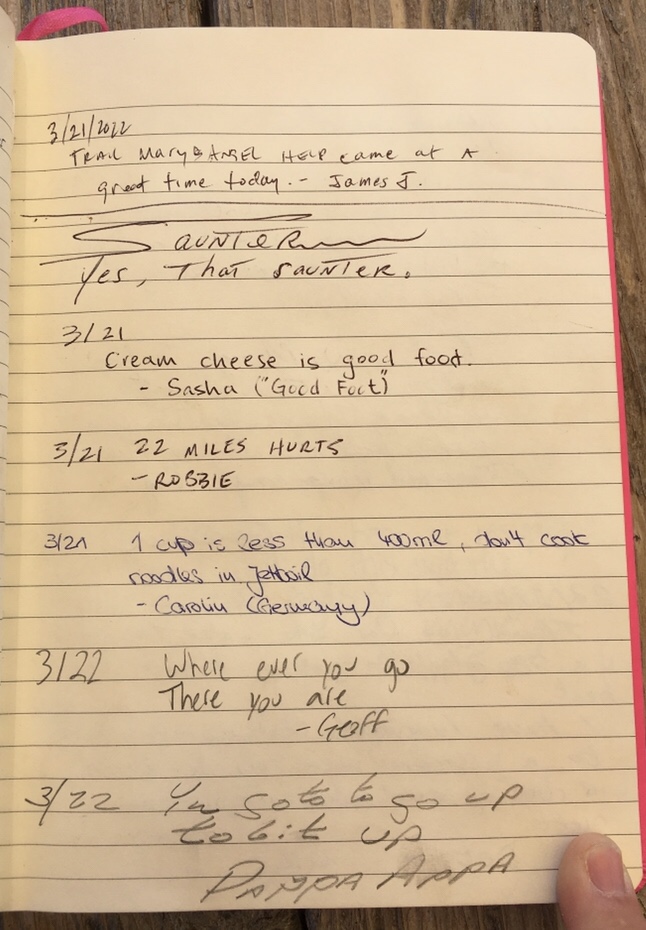 3/21/2022
TRAIL Mary & ANGEL HELP came at A
great time today. - James J.
SAUNTER
Yes, That SAUNTER.
3/21
Cream cheese is good food.
- Sasha ("Good Foot")
3/21 22 MILES HURTS
- ROBBIE
3/21 1 cup is less than 400ml, don't cook
noodles in Jetboil
- Carolin (Germany)
3/22 Where ever you go
There you are
- Geoff
3/22 to go up
UP
PAPPA APPA